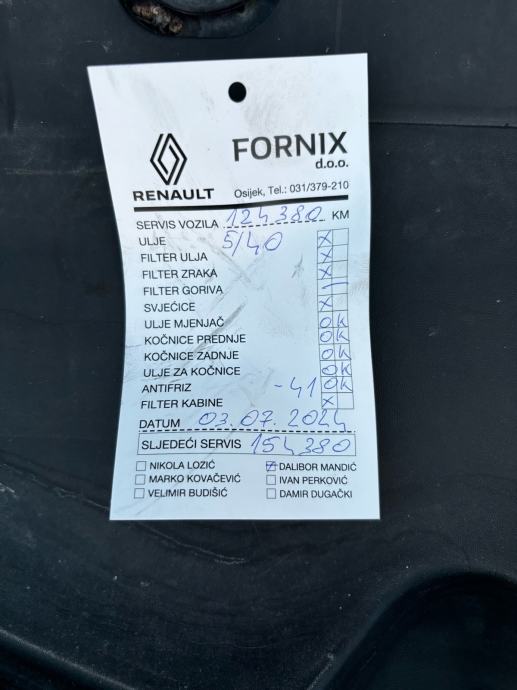 FORNIX
d.o.o.
RENAULT
Osijek, Tel.: 031/379-210
SERVIS VOZILA 124380 KM
ULJE 5/40 X
FILTER ULJA X
FILTER ZRAKA X
FILTER GORIVA —
SVJEĆICE X
ULJE MJENJAČ OK
KOČNICE PREDNJE OK
KOČNICE ZADNJE OK
ULJE ZA KOČNICE OK
ANTIFRIZ -41 OK
FILTER KABINE X
DATUM 03.07.2024
SLJEDEĆI SERVIS 154380
NIKOLA LOZIĆ DALIBOR MANDIĆ
MARKO KOVAČEVIĆ IVAN PERKOVIĆ
VELIMIR BUDIŠIĆ DAMIR DUGAČKI